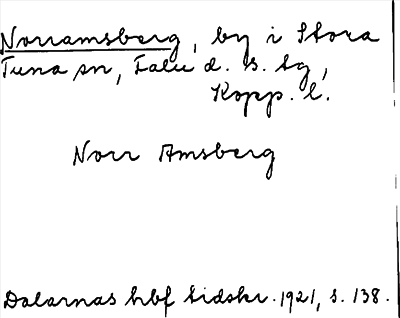 Norramsberg, by i Stora
Tuna sn, Falu d. s. tg,
Kopp. l.
Norr Amsberg
Dalarnas hbf tidskr. 1921, s. 138.